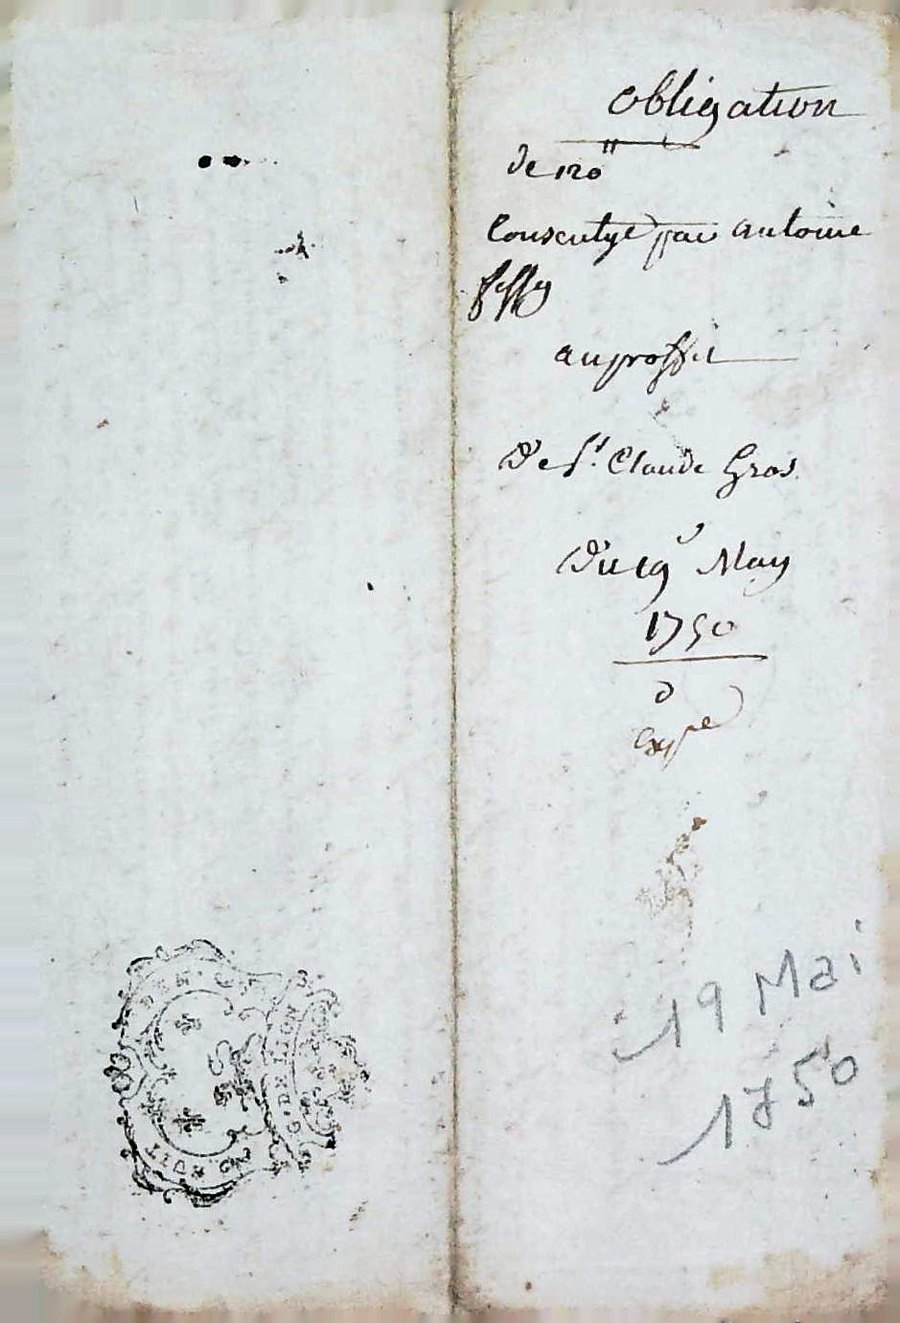 obligation
de 120ᵗᵗ
Consentye par antoine
au proffit
De Sʳ. Claude Gros
Du 19ᵉ May
1750
Expᵉ
19 Mai
1750
G. DE LION
HUIT